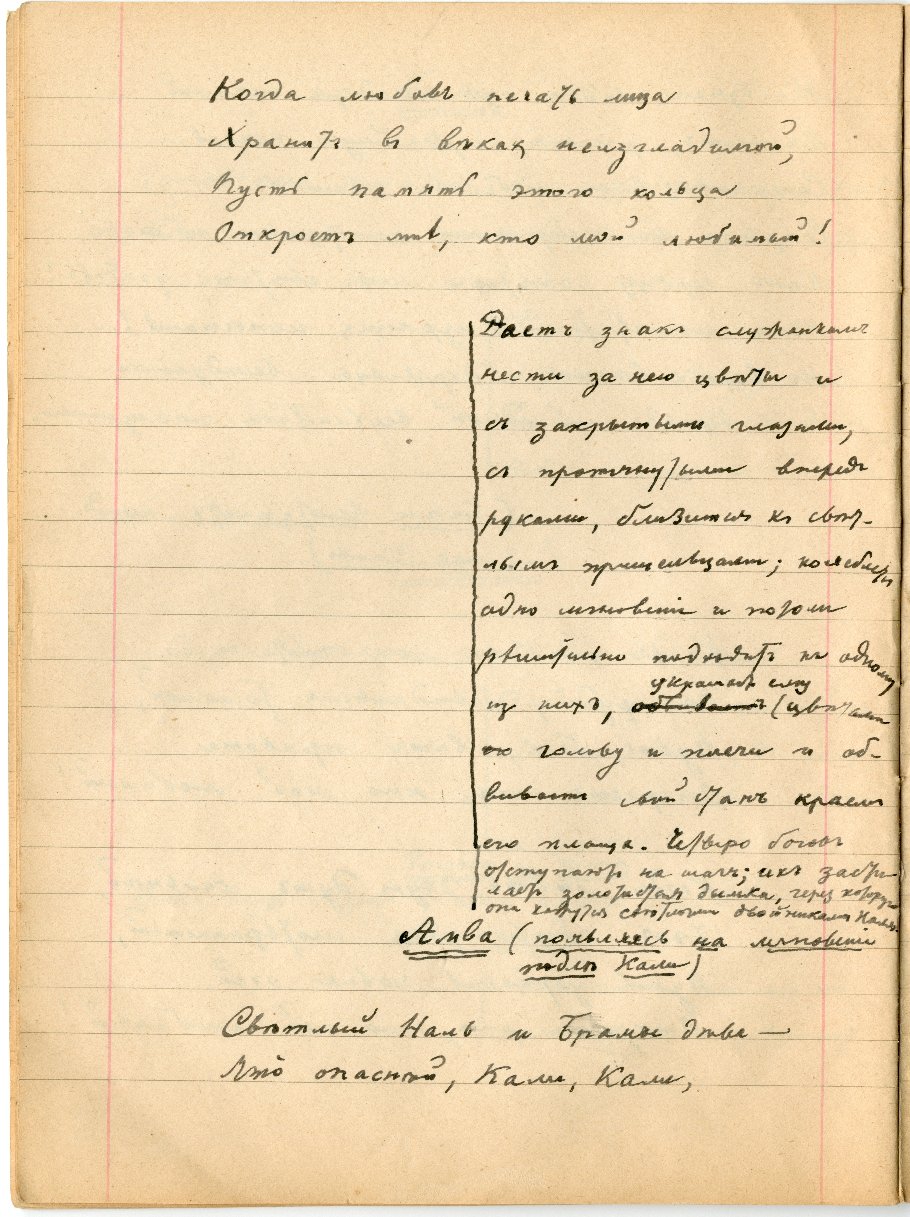 Когда любовь печать лица
Хранитъ въ вѣкахъ неизгладимой,
Пусть память этого кольца
Откроетъ мнѣ, кто мой любимый!
Даетъ знакъ служанкамъ
нести за нею цвѣты и
съ закрытыми глазами,
съ протянутыми впередъ
руками, близится къ свѣт-
лымъ пришельцамъ; колеблется
одно мгновеніе и потомъ
рѣшительно подходитъ къ одному
изъ нихъ, украшаетъ ему
обвиваетъ (цвѣтами
его голову и плечи и об-
виваетъ свой станъ краемъ
его плаща. Четверо боговъ
отступаютъ на шагъ; ихъ засти-
лаетъ золотистая дымка, через которую
они кажутся свѣтлыми двойниками Наля.
Амва (появляясь на мгновеніе
подлѣ Кали)
Свѣтлый Наль и Брамы дѣва —
Что опаснѣй, Кали, Кали,